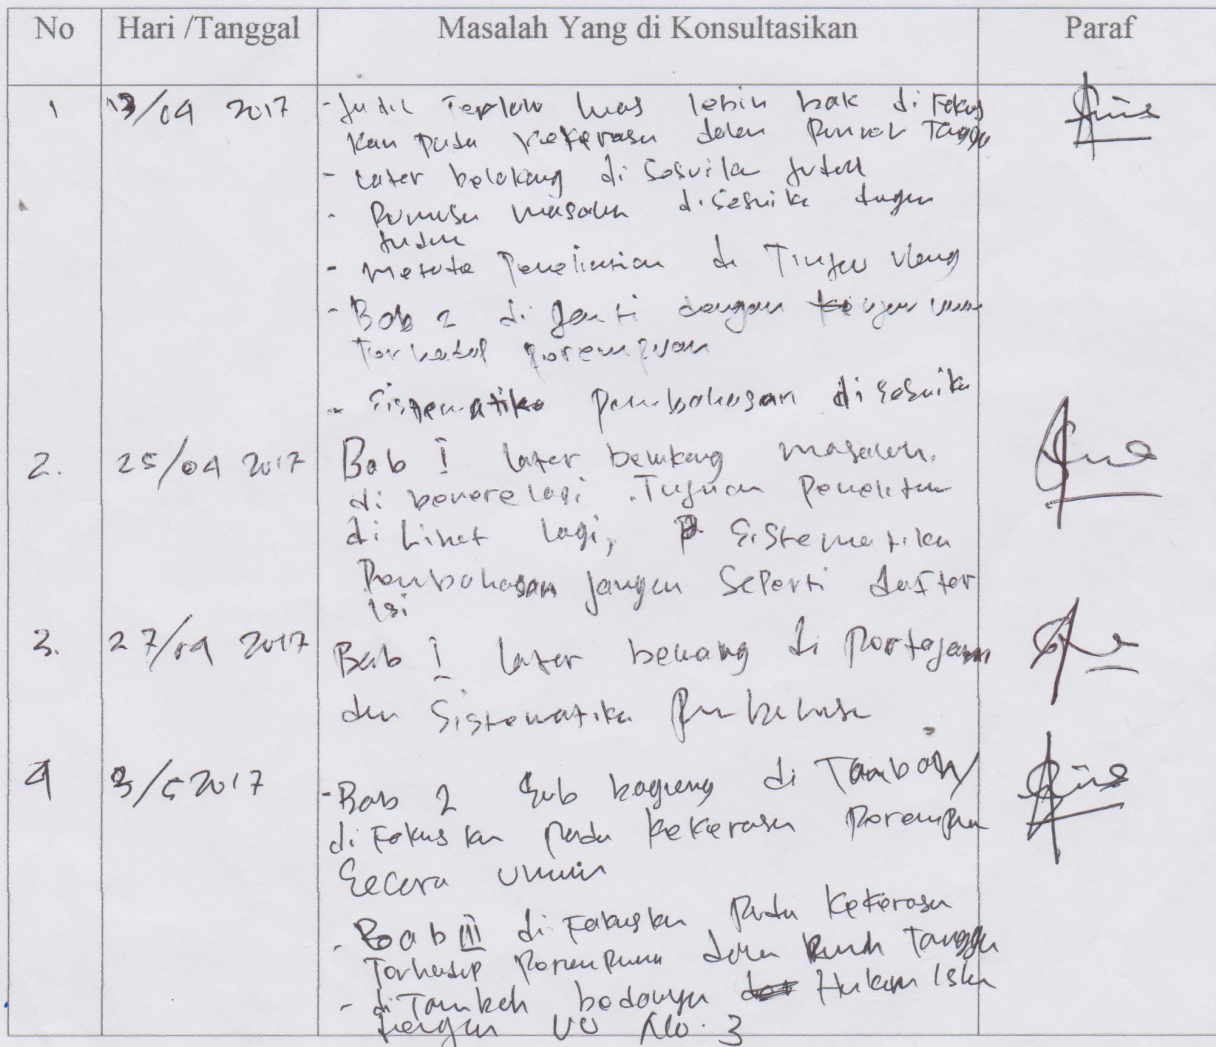 No Hari /Tanggal Masalah Yang di Konsultasikan Paraf
1 13/04 2017 - Judul Terlalu luas lebih baik di Fokus
kan pada kekerasan dalam Rumah Tangga
- Latar belakang di Sesuika Judul
- Rumusan masalah disesuika dengan
Judul
- Metode Penelitian di Tinjau Ulang
- Bab 2 di Ganti dengan umum
Terhadap perempuan
- Sistematika pembahasan di sesuika
2. 25/04 2017 Bab I Latar belakang masalah.
di benere lagi. Tujuan Penelitian
di Lihat lagi, Sistematika
Pembahasan jangan Seperti daftar
isi
3. 27/04 2017 Bab I Latar belakang di Pertajam
dan Sistematika Pembahasan
4 3/5 2017 - Bab 2 Sub bagiang di Tambah/
di Fokus kan pada kekerasan Perempuan
Secara Umum
- Bab III di Fokuskan Pada Kekerasan
Terhadap Perempuan dalam Rumah Tangga
- di Tambah bedanya Hukum Islam
dengan UU No. 3